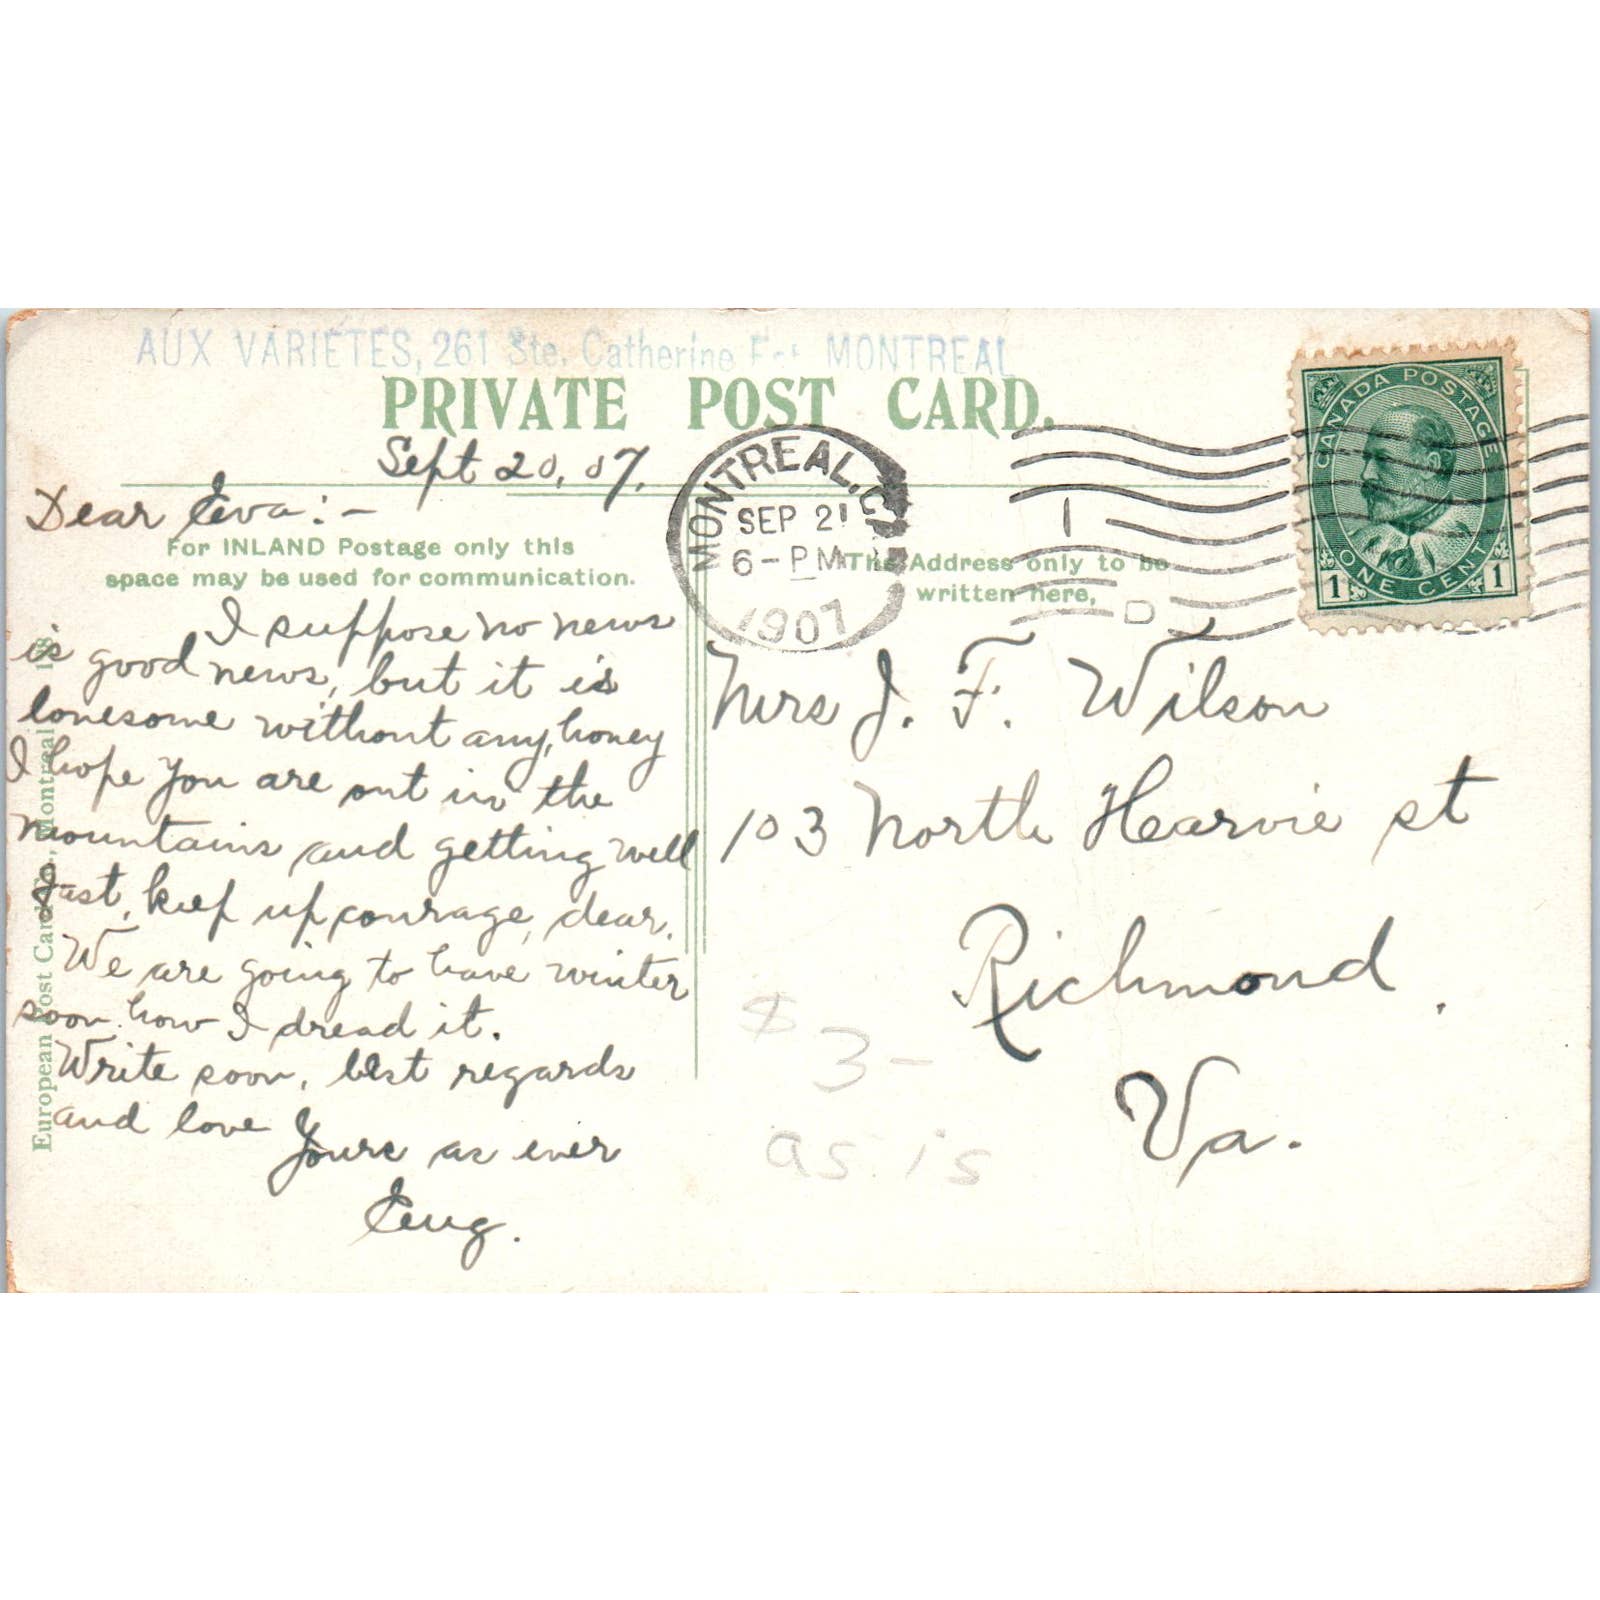 AUX VARIÉTÉS, 261 Ste. Catherine Est MONTREAL
PRIVATE POST CARD.
Sept 20, 07.
Dear Eva:-
For INLAND Postage only this
space may be used for communication.
I suppose no news
is good news, but it is
lonesome without any, honey
I hope you are out in the
mountains and getting well
fast, keep up courage, dear.
We are going to have winter
soon. how I dread it.
Write soon, best regards
and love
Yours as ever
Eug.
European Post Card Co., Montreal
MONTREAL, C
SEP 21
6-PM
1907
1
D
CANADA POSTAGE
1 ONE CENT 1
The Address only to be
written here,
Mrs J. F. Wilson
103 North Harvie st
Richmond.
Va.
$3-
as is